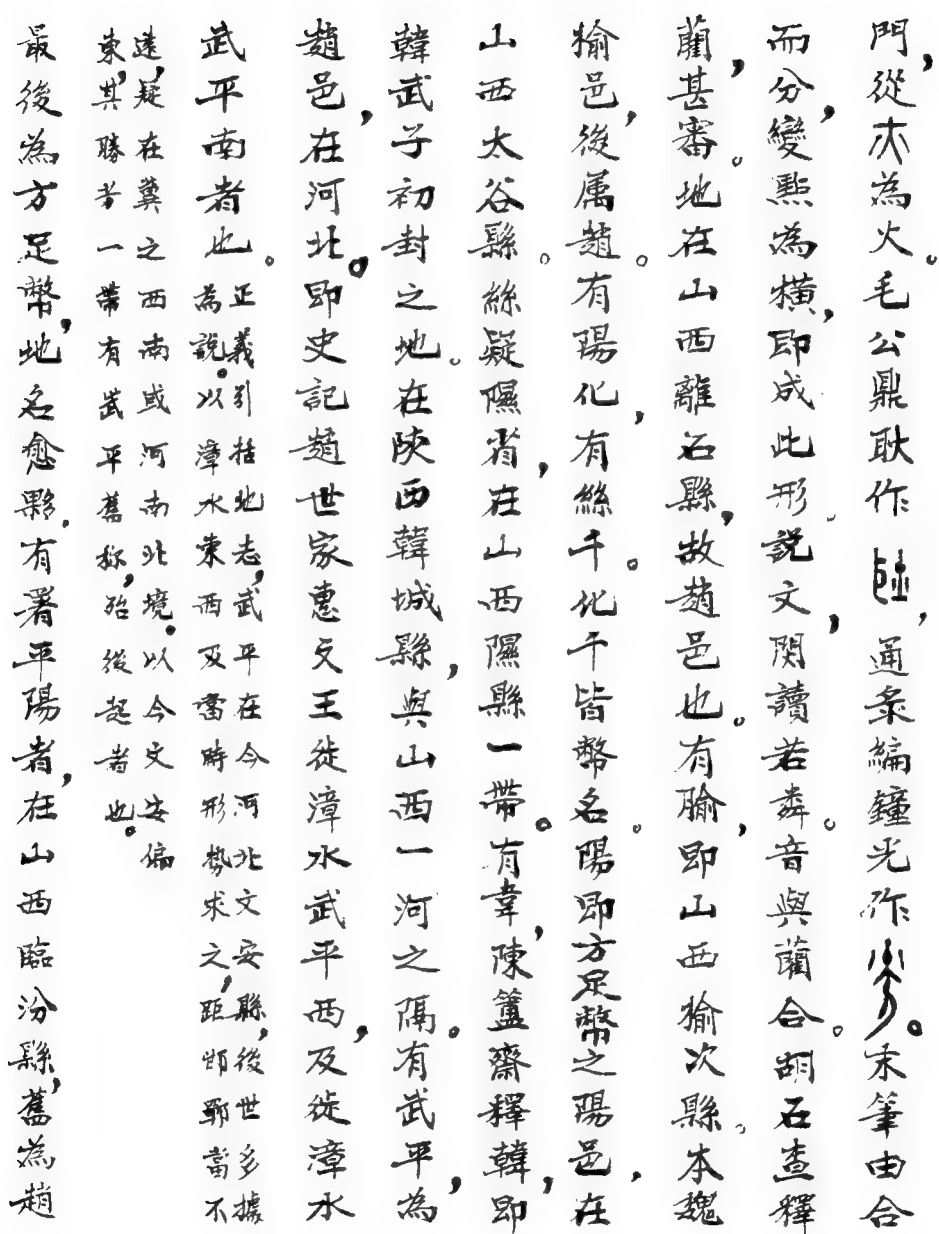 門，從亦為火。毛公鼎耿作，通彔編鐘光作。末筆由合
而分，變點為橫，即成此形。說文，閔讀若粦。音與藺合。胡石查釋
藺，甚審。地在山西離石縣，故趙邑也。有腧，即山西榆次縣。本魏
榆邑，後屬趙。有陽化，有絲千。化千皆幣名。陽即方足幣之陽邑，在
山西太谷縣。絲疑隰省，在山西隰縣一帶。有韋，陳簠齋釋韓，即
韓武子初封之地。在陝西韓城縣，與山西一河之隔。有武平，為
趙邑，在河北。即史記趙世家惠文王徙漳水武平西，及徙漳水
武平南者也。
正義引括地志，武平在今河北文安縣，後世多據
為說。以漳水東西及當時形勢求之，距邯鄲當不
遠，疑在冀之西南或河南北境。以今文安偏
東，其勝芳一帶有武平舊稱，殆後起者也。
最後為方足幣，地名愈夥。有署平陽者，在山西臨汾縣，舊為趙